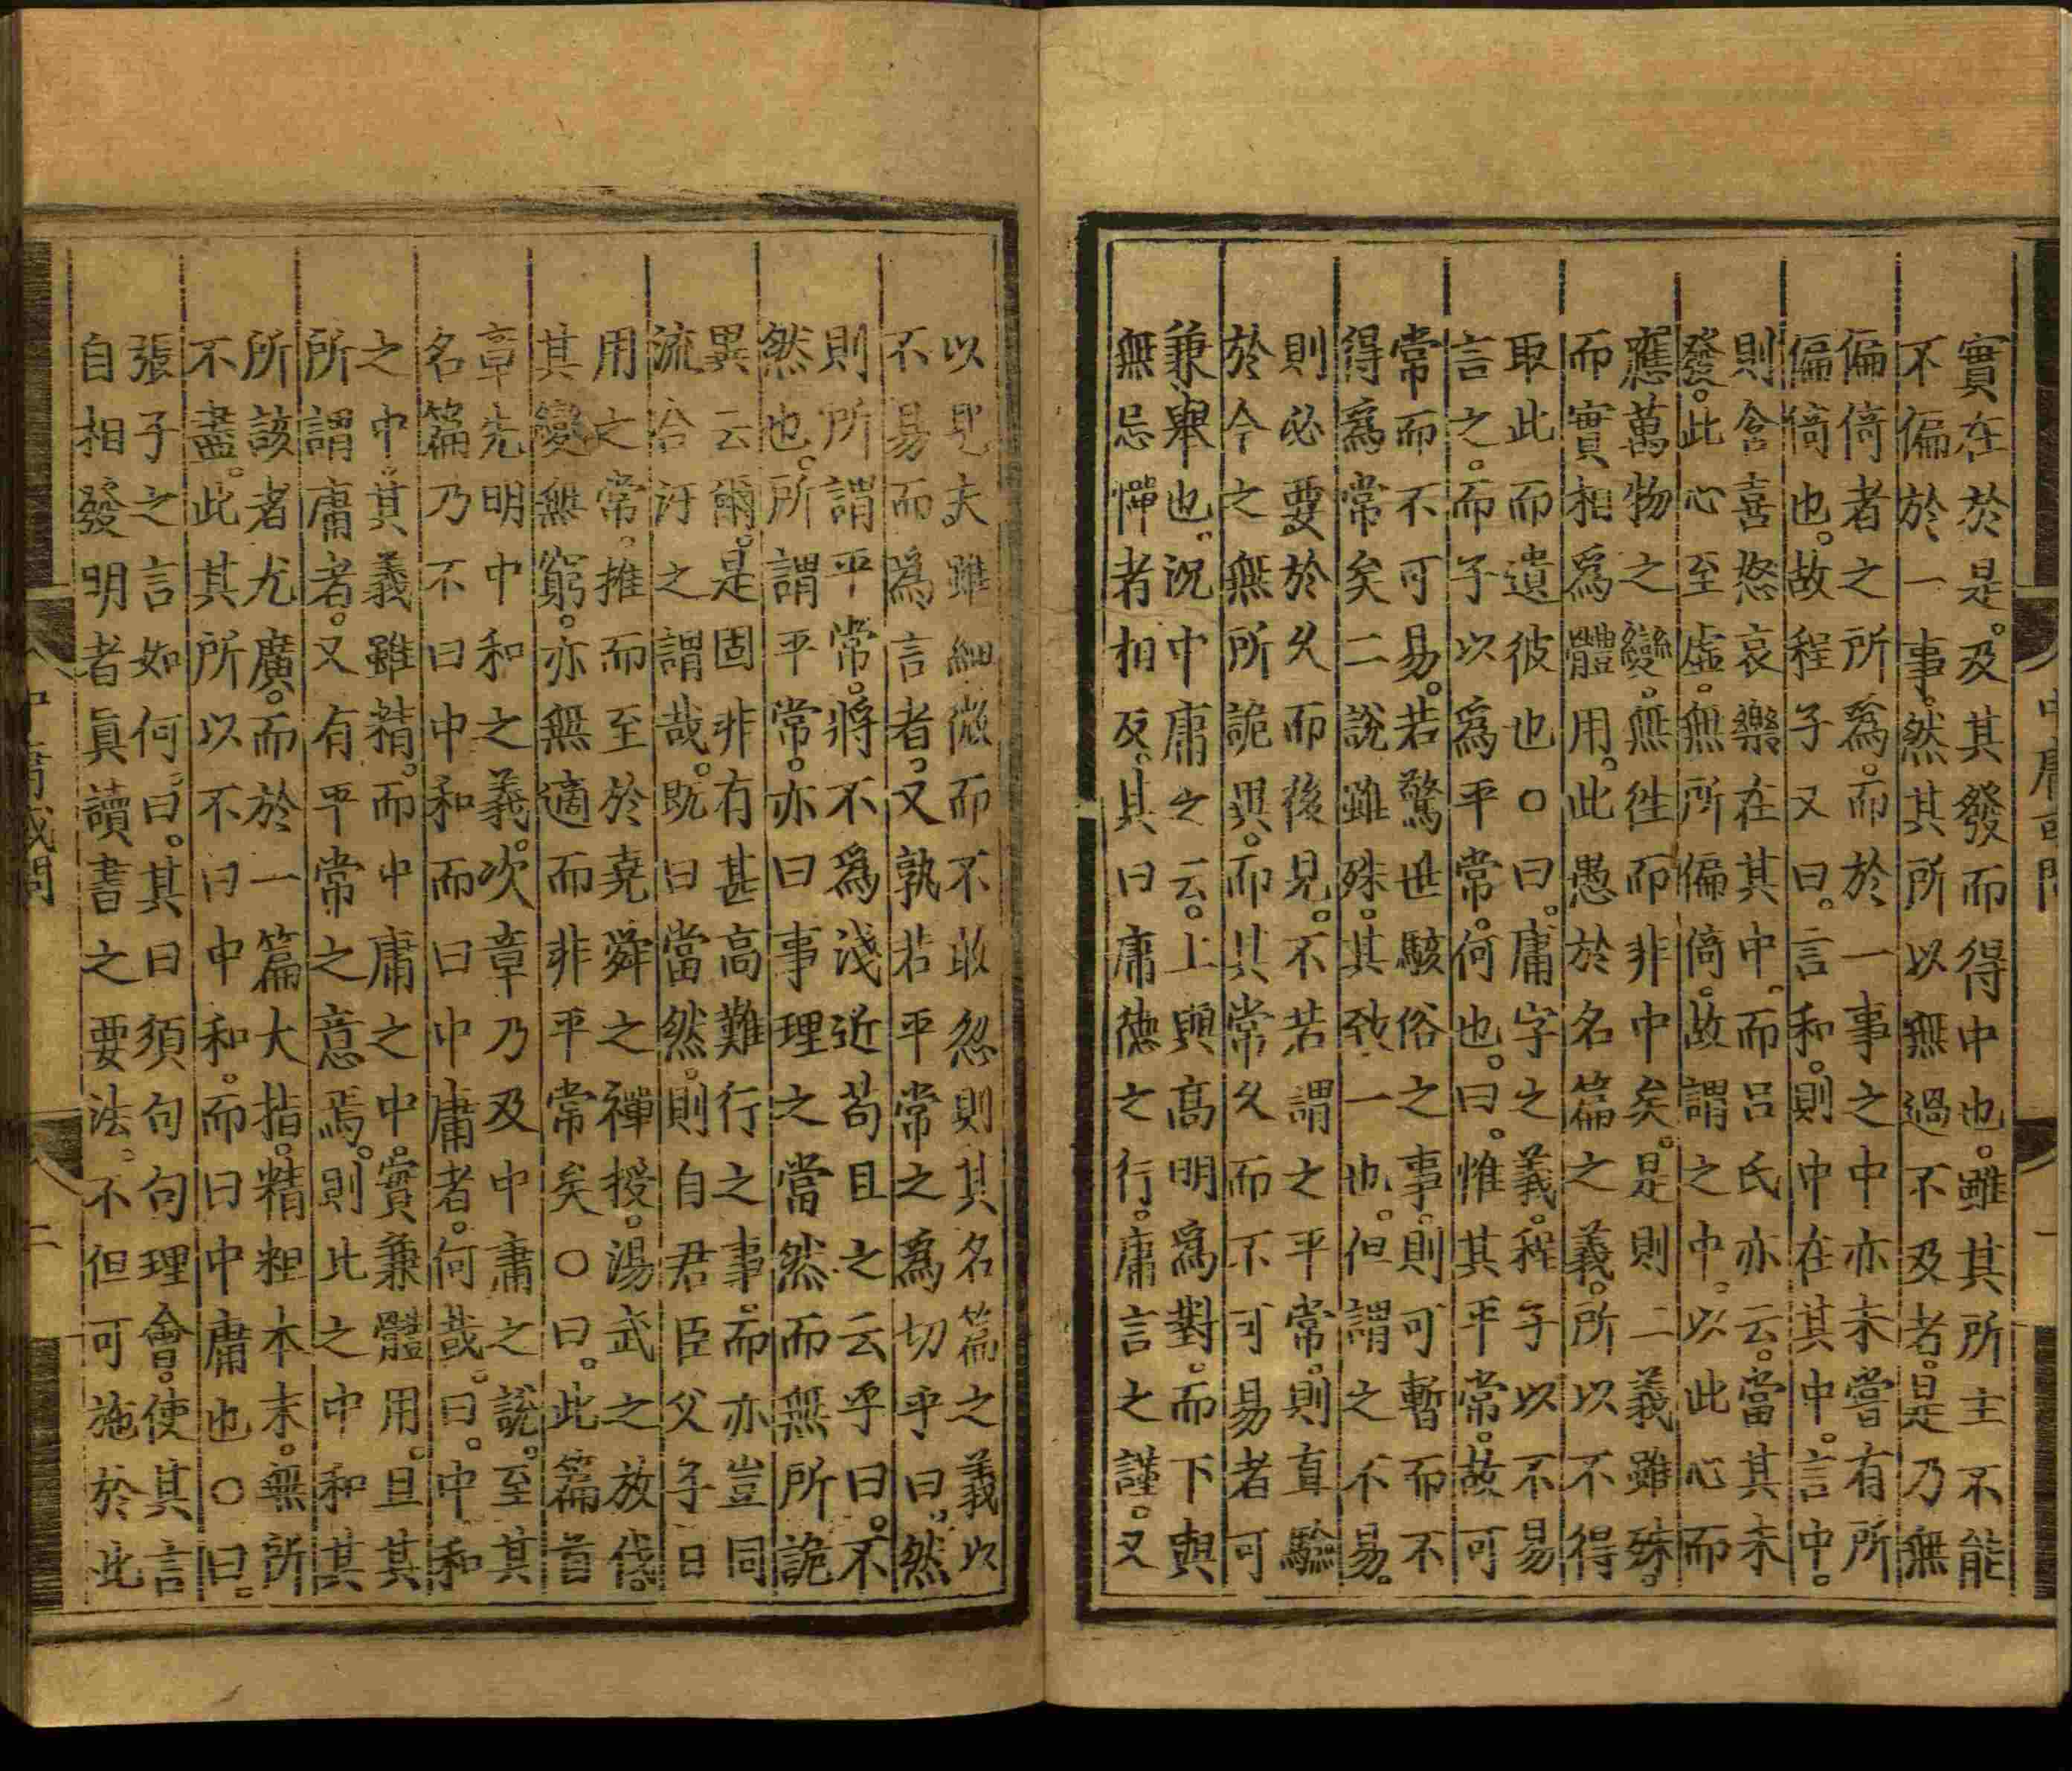 實在於是。及其發而得中也。雖其所主不能
不偏於一事。然其所以無過不及者。是乃無
偏倚者之所爲。而於一事之中亦未嘗有所
偏倚也。故程子又曰。言和。則中在其中。言中。
則含喜怒哀樂在其中。而呂氏亦云。當其未
發。此心至虛。無所偏倚。故謂之中。以此心而
應萬物之變。無徃而非中矣。是則二義雖殊。
而實相爲體用。此愚於名篇之義。所以不得
取此而遺彼也○曰。庸字之義。程子以不易
言之。而子以爲平常。何也。曰。惟其平常。故可
常而不可易。若驚世駭俗之事。則可暫而不
得爲常矣二說雖殊。其致一也。但謂之不易。
則必要於久而後見。不若謂之平常。則直驗
於今之無所詭異。而其常久而不可易者可
兼擧也。況中庸之云。上與高明爲對。而下與
無忌憚者相反。其曰庸德之行。庸言之謹。又
以見夫雖細微而不敢忽則其名篇之義以
不易而爲言者。又孰若平常之爲切乎曰。然
則所謂平常。將不爲淺近苟且之云乎曰。不
然也。所謂平常。亦曰事理之當然而無所詭
異云爾。是固非有甚高難行之事。而亦豈同
流合汙之謂哉。旣曰當然。則自君臣父子日
用之常。推而至於堯舜之禪授。湯武之放伐。
其變無窮。亦無適而非平常矣○曰。此篇首
章先明中和之義。次章乃及中庸之說。至其
名篇乃不曰中和而曰中庸者。何哉。曰。中和
之中。其義雖精。而中庸之中。實兼體用。且其
所謂庸者。又有平常之意焉。則比之中和其
所該者尤廣。而於一篇大指。精粗本末。無所
不盡。此其所以不曰中和。而曰中庸也○曰。
張子之言如何。曰。其曰須句句理會。使其言
自相發明者眞讀書之要法。不但可施於此
中庸或問
二